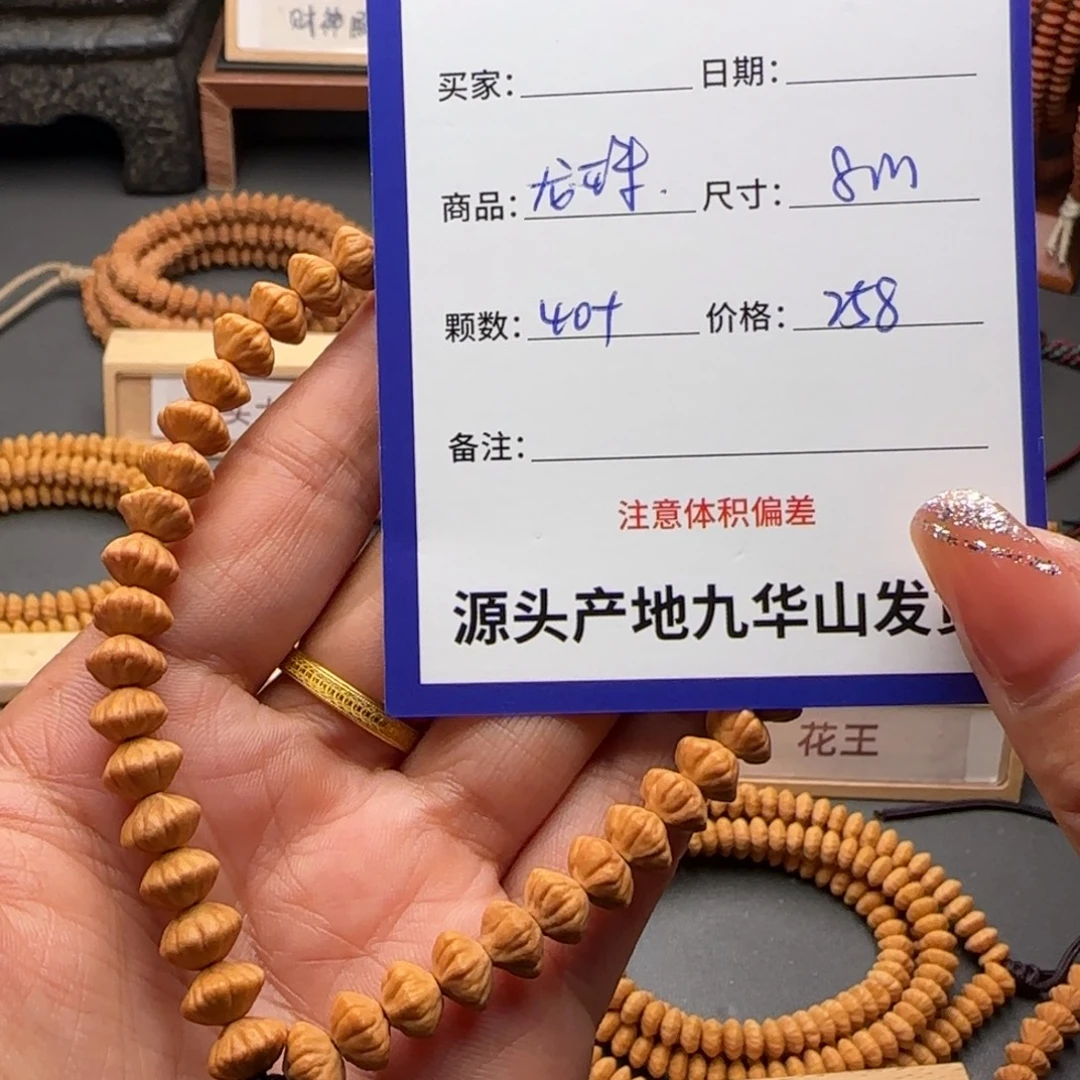 财神
买家： 日期：
商品：龙珠. 尺寸：8m
颗数：40+ 价格：258
备注：
注意体积偏差
源头产地九华山发
花王